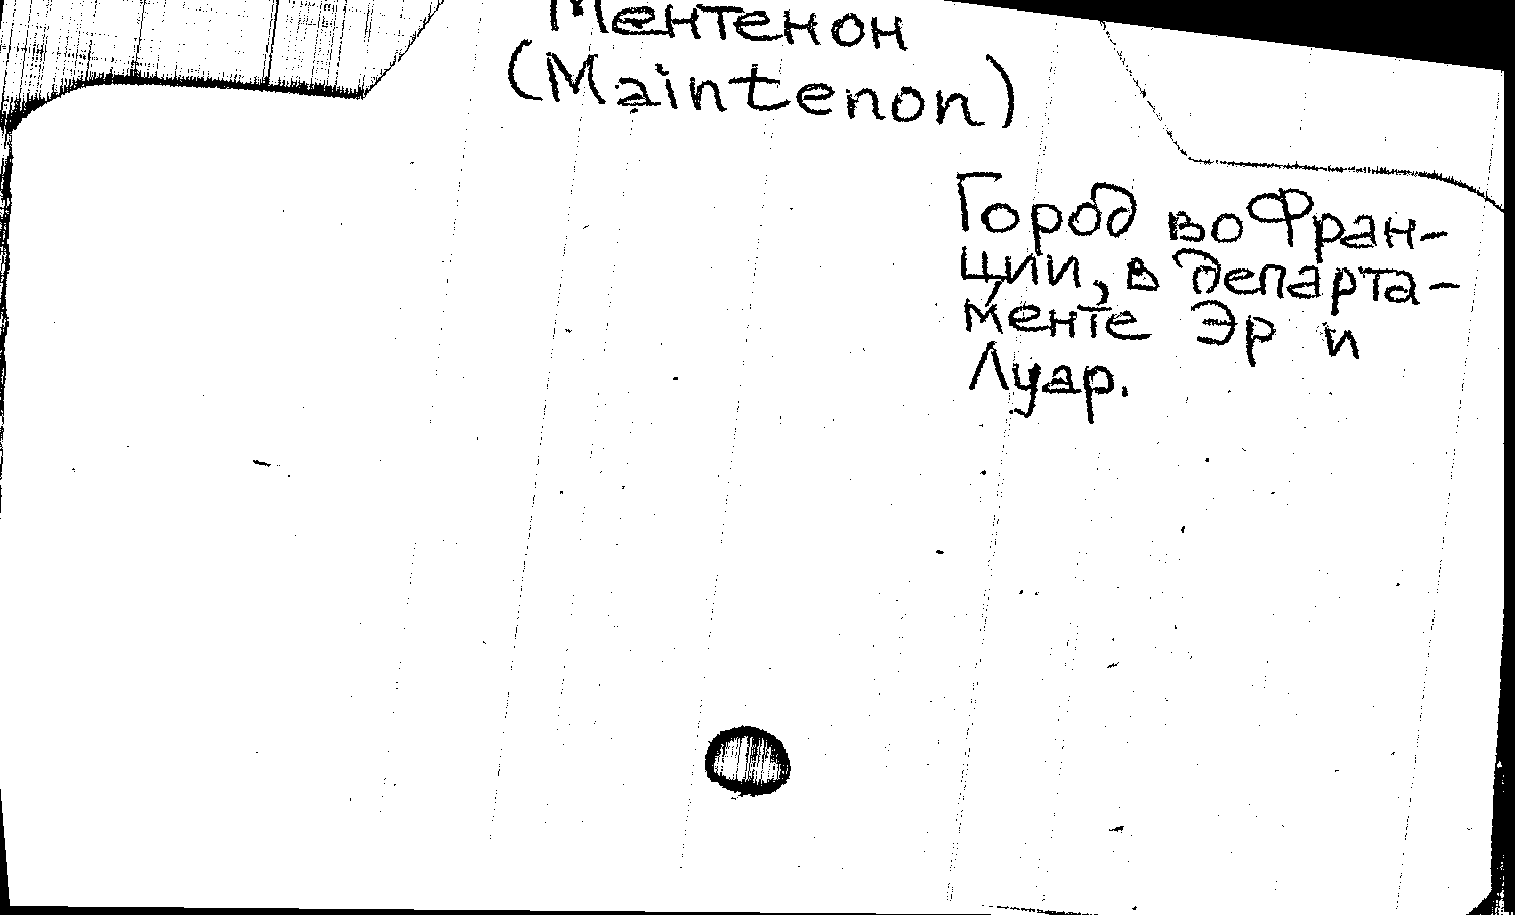 Ментенон
(Maintenon)
Город во Фран-
ции, в департа-
менте Эр и
Луар.